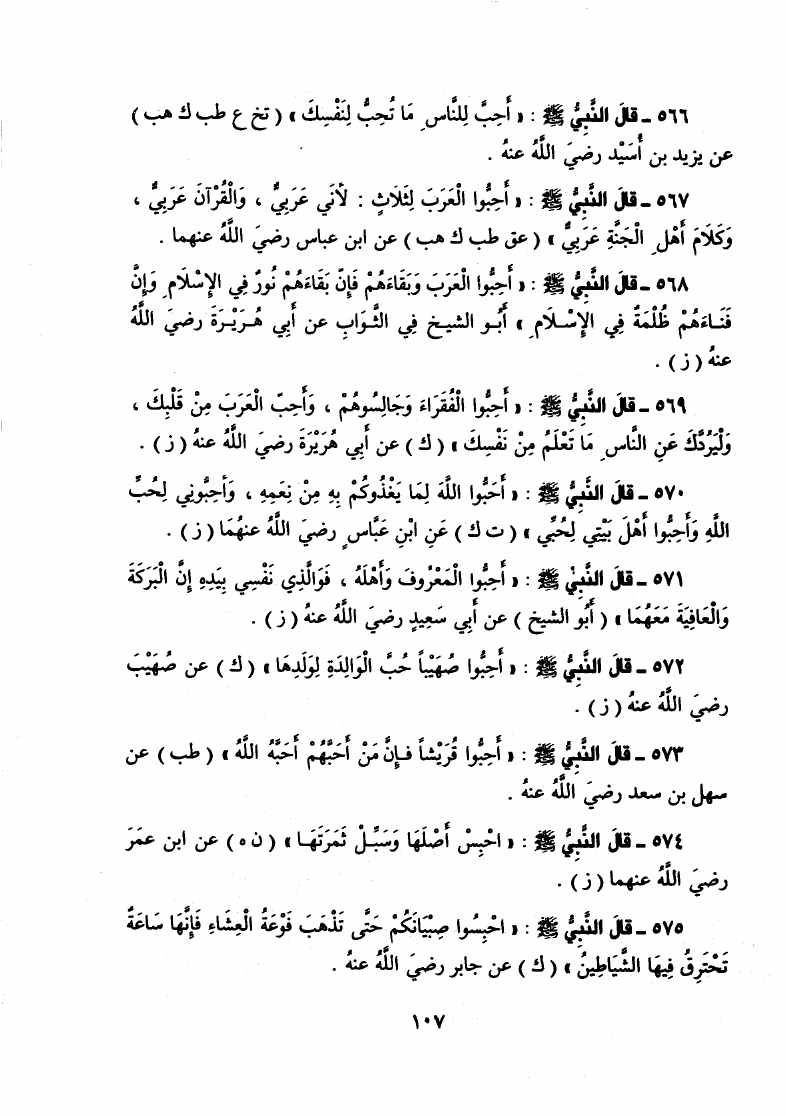 ٥٦٦ ـ قالَ النَّبِيُّ ﷺ : « أَحِبَّ لِلنَّاسِ مَا تُحِبُّ لِنَفْسِكَ » ( تخ ع طب ك هب )
عن يزيد بن أُسَيْد رضيَ اللَّهُ عنهُ .
٥٦٧ ـ قالَ النَّبِيُّ ﷺ : « أَحِبُّوا الْعَرَبَ لِثَلَاثٍ : لأَنِّي عَرَبِيٌّ ، وَالْقُرْآنَ عَرَبِيٌّ ،
وَكَلَامَ أَهْلِ الْجَنَّةِ عَرَبِيٌّ » ( عق طب ك هب ) عن ابن عباس رضيَ اللَّهُ عنهما .
٥٦٨ ـ قالَ النَّبِيُّ ﷺ : « أَحِبُّوا الْعَرَبَ وَبَقَاءَهُمْ فَإِنَّ بَقَاءَهُمْ نُورٌ فِي الإِسْلَامِ وَإِنَّ
فَنَاءَهُمْ ظُلْمَةٌ فِي الإِسْلَامِ » أَبُو الشيخ فِي الثَّوَابِ عن أَبِي هُرَيْرَةَ رضيَ اللَّهُ
عنهُ ( ز ) .
٥٦٩ ـ قالَ النَّبِيُّ ﷺ : « أَحِبُّوا الْفُقَرَاءَ وَجَالِسُوهُمْ ، وَأَحِبَّ الْعَرَبَ مِنْ قَلْبِكَ ،
وَلْيَرُدَّكَ عَنِ النَّاسِ مَا تَعْلَمُ مِنْ نَفْسِكَ » ( ك ) عن أَبِي هُرَيْرَةَ رضيَ اللَّهُ عنهُ ( ز ) .
٥٧٠ ـ قالَ النَّبِيُّ ﷺ : « أَحِبُّوا اللَّهَ لِمَا يَغْذُوكُمْ بِهِ مِنْ نِعَمِهِ ، وَأَحِبُّونِي لِحُبِّ
اللَّهِ وَأَحِبُّوا أَهْلَ بَيْتِي لِحُبِّي » ( ت ك ) عَنِ ابْنِ عَبَّاسٍ رضيَ اللَّهُ عنهُمَا ( ز ) .
٥٧١ ـ قالَ النَّبِيُّ ﷺ : « أَحِبُّوا الْمَعْرُوفَ وَأَهْلَهُ ، فَوَالَّذِي نَفْسِي بِيَدِهِ إِنَّ الْبَرَكَةَ
وَالْعَافِيَةَ مَعَهُمَا » ( أَبُو الشيخ ) عن أَبِي سَعِيدٍ رضيَ اللَّهُ عنهُ ( ز ) .
٥٧٢ ـ قالَ النَّبِيُّ ﷺ : « أَحِبُّوا صُهَيْباً حُبَّ الْوَالِدَةِ لِوَلَدِهَا » ( ك ) عن صُهَيْبَ
رضيَ اللَّهُ عنهُ ( ز ) .
٥٧٣ ـ قالَ النَّبِيُّ ﷺ : « أَحِبُّوا قُرَيْشاً فَإِنَّ مَنْ أَحَبَّهُمْ أَحَبَّهُ اللَّهُ » ( طب ) عن
سهل بن سعد رضيَ اللَّهُ عنهُ .
٥٧٤ ـ قالَ النَّبِيُّ ﷺ : « احْبِسْ أَصْلَهَا وَسَبِّلْ ثَمَرَتَهَا » ( ن ه ) عن ابن عمَرَ
رضيَ اللَّهُ عنهما ( ز ) .
٥٧٥ ـ قالَ النَّبِيُّ ﷺ : « احْبِسُوا صِبْيَانَكُمْ حَتَّى تَذْهَبَ فَوْعَةُ الْعِشَاءِ فَإِنَّهَا سَاعَةٌ
تَخْتَرِقُ فِيهَا الشَّيَاطِينُ » ( ك ) عن جابر رضيَ اللَّهُ عنهُ .
١٠٧